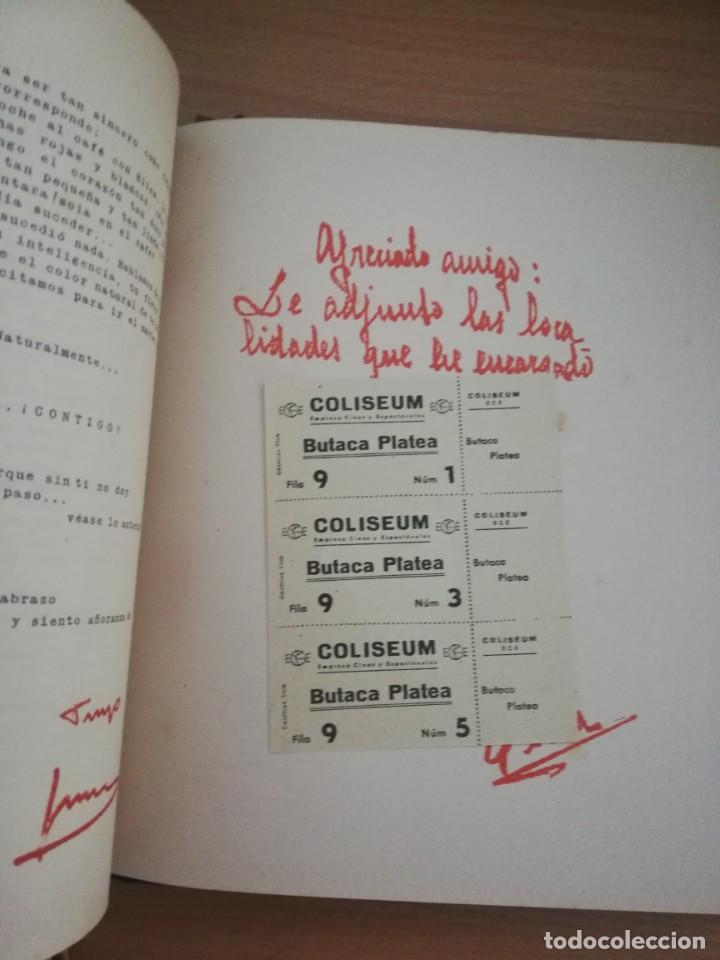 a ser tan sincero como
corresponde;
oche al café con
has rojas y blancas,
ngo el corazón tan
tan pequeña y tan
ntara ¡sola en el café!
día suceder...
sucedió nada. Hablamos
inteligencia, tu
e el color natural de
citamos para ir el
Naturalmente...
. ¡CONTIGO!
orque sin ti no doy
paso...
véase lo
abrazo
y siento añoranza
Tuyo
Apreciado amigo:
Le adjunto las loca
lidades que he encargado
ECE COLISEUM ECE
Empresa Cines y Espectáculos
Butaca Platea
Fila 9 Núm 1
COLISEUM
ECE
Butaca
Platea
ECE COLISEUM ECE
Empresa Cines y Espectáculos
Butaca Platea
Fila 9 Núm 3
COLISEUM
ECE
Butaca
Platea
ECE COLISEUM ECE
Empresa Cines y Espectáculos
Butaca Platea
Fila 9 Núm 5
COLISEUM
ECE
Butaca
Platea
todocoleccion